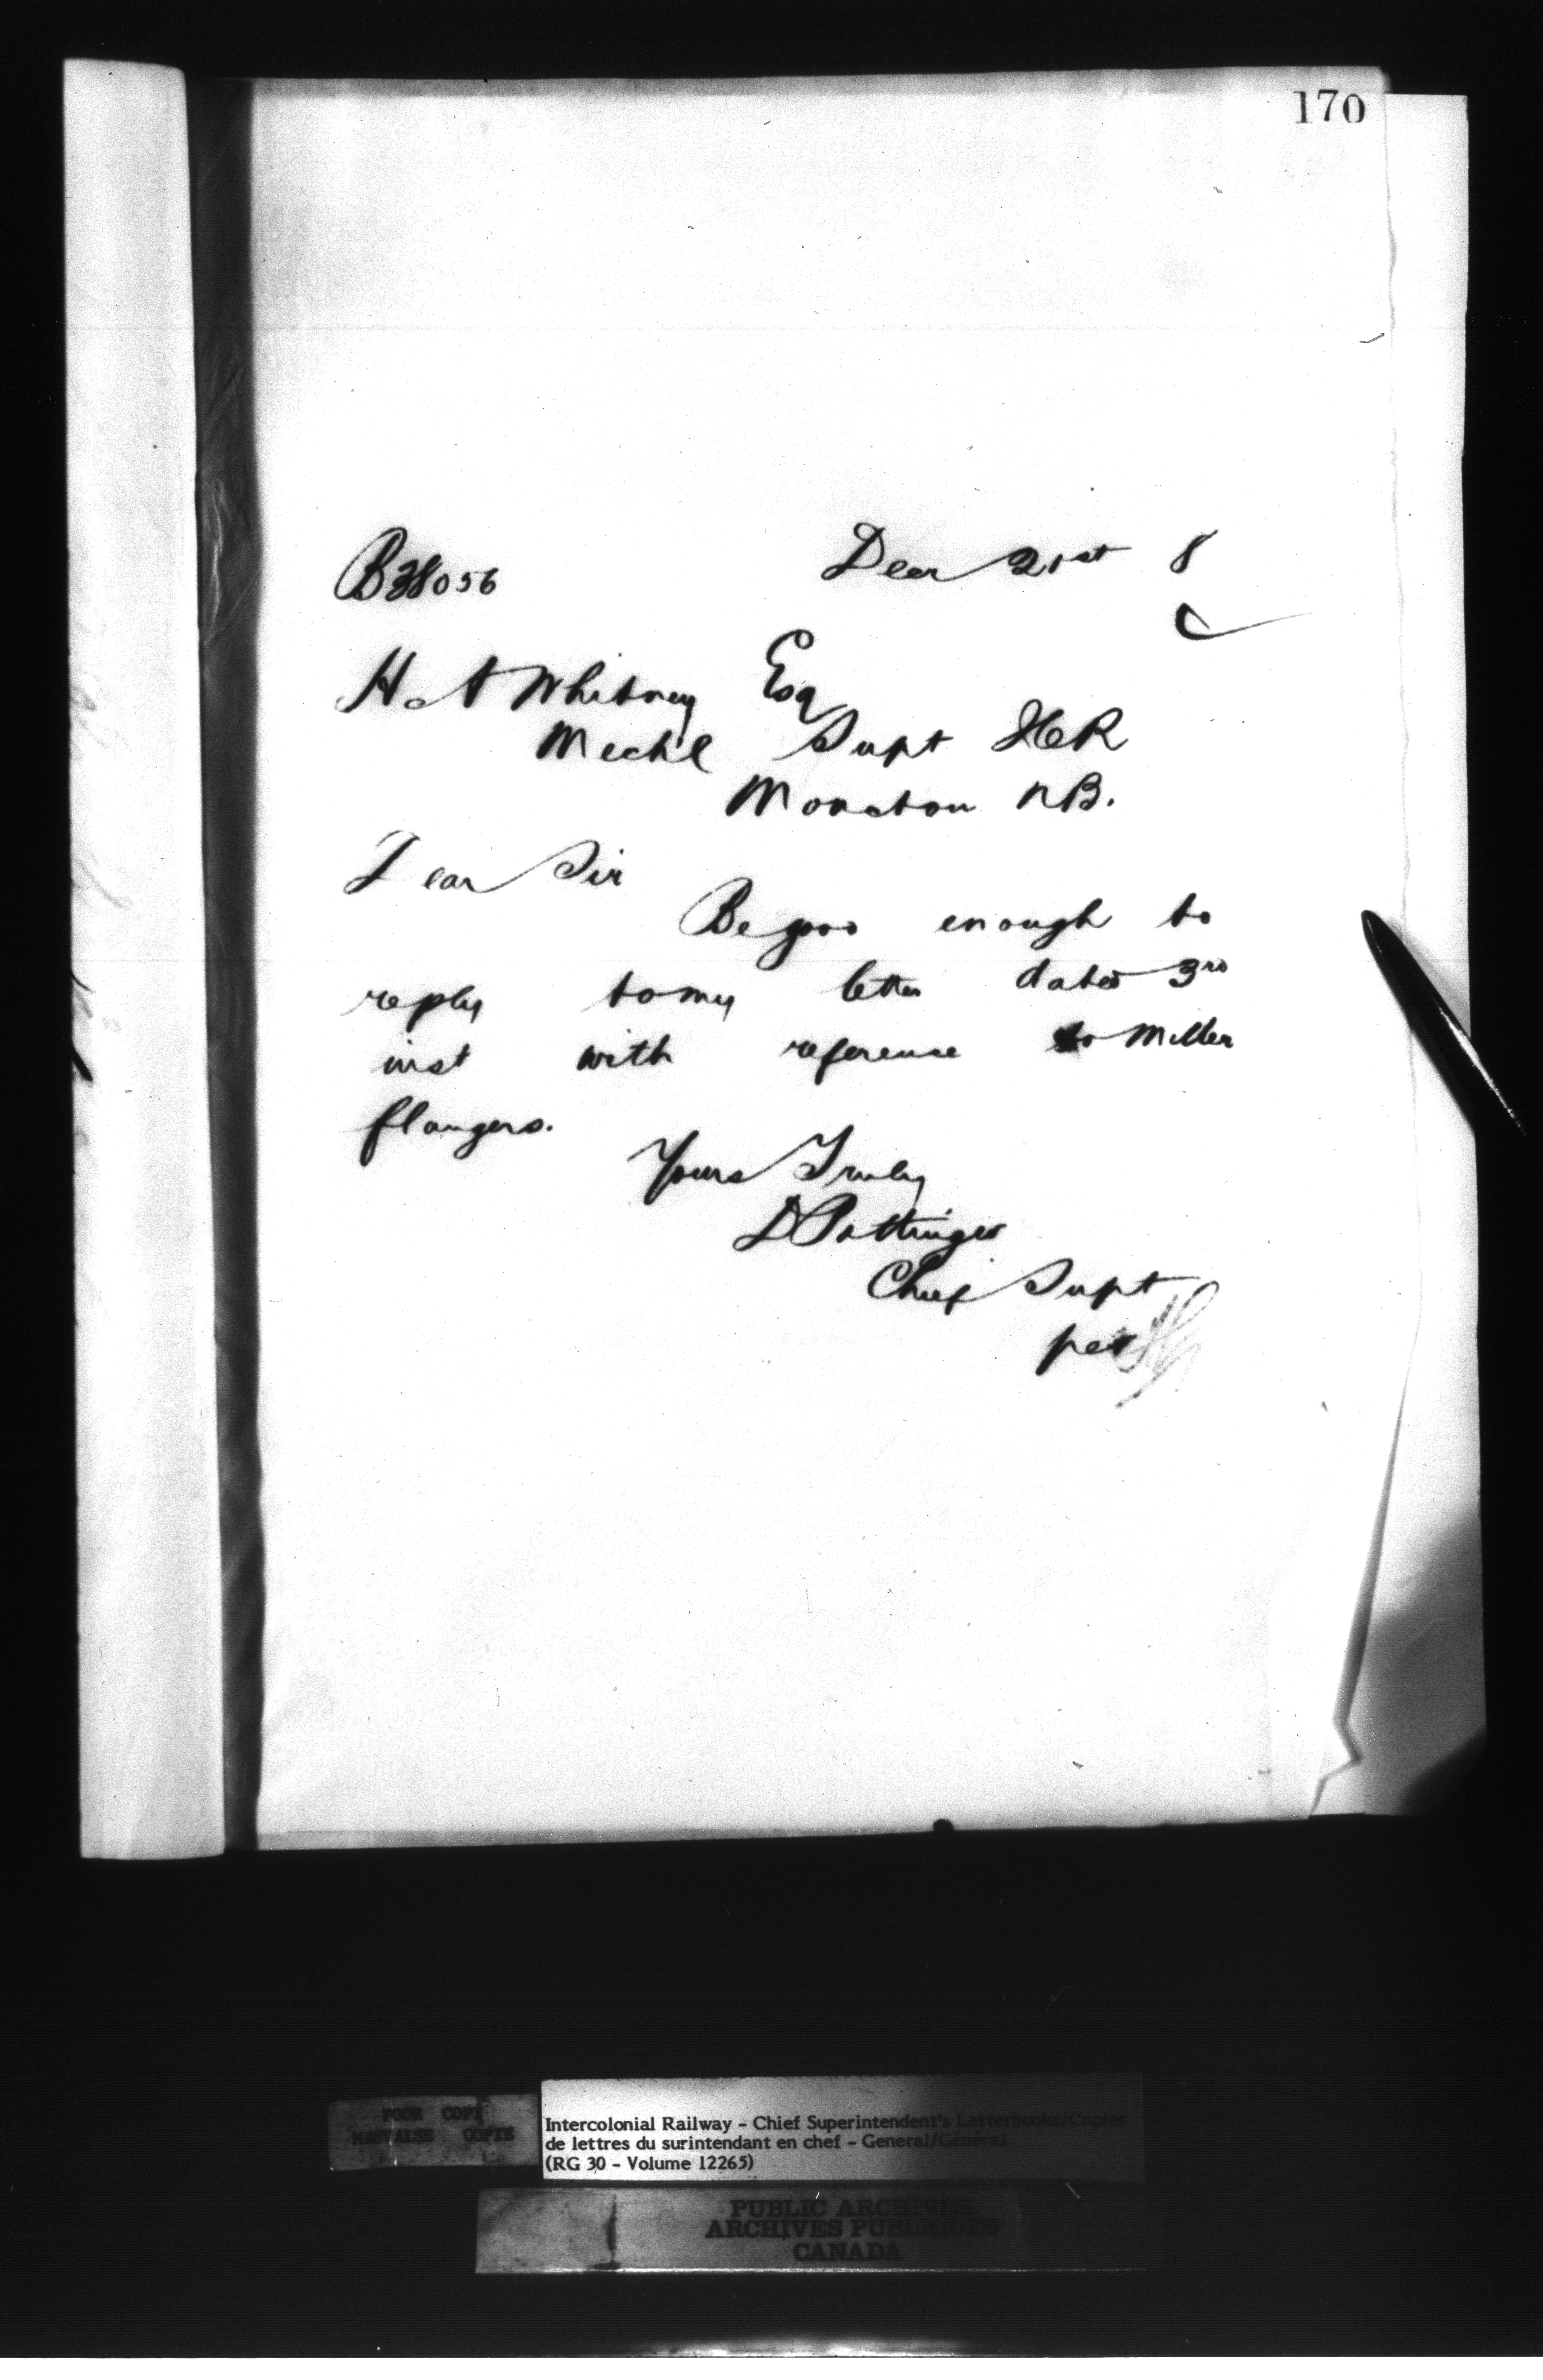 170
B38056 Decr 21st 8
H A Whitney Esq
Mechl Supt ICR
Moncton NB.
Dear Sir
Be good enough to
reply to my letter dated 3rd
inst with reference to Miller
flangers.
Yours Truly
D Pottinger
Chief Supt
per
POOR COPY
MAUVAISE COPIE
Intercolonial Railway - Chief Superintendent's Letterbooks/Copies
de lettres du surintendant en chef - General/Général
(RG 30 - Volume 12265)
PUBLIC ARCHIVES
ARCHIVES PUBLIQUES
CANADA